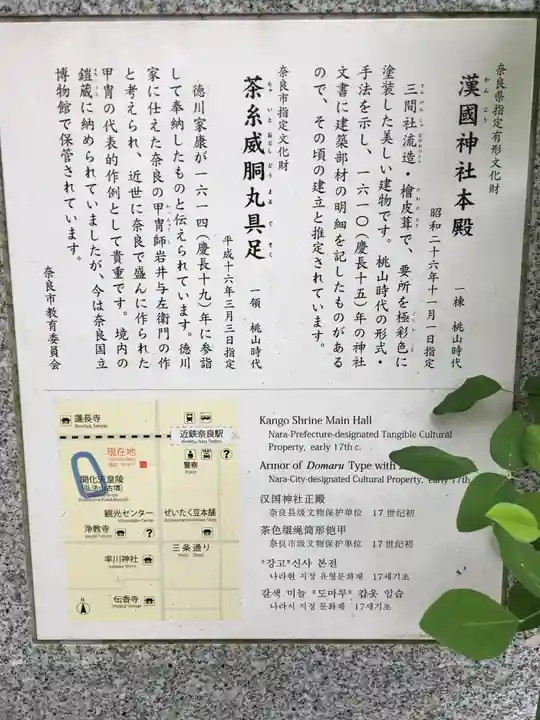 奈良県指定有形文化財
漢國神社本殿
かんごう
一棟 桃山時代
昭和二十六年十一月一日指定
三間社流造・檜皮葺で、要所を極彩色に
塗装した美しい建物です。桃山時代の形式・
手法を示し、一六一〇(慶長十五)年の神社
文書に建築部材の明細を記したものがある
ので、その頃の建立と推定されています。
奈良市指定文化財
茶糸威胴丸具足
ちゃいとおどしどうまるぐそく
一領 桃山時代
平成十六年三月三日指定
徳川家康が一六一四(慶長十九)年に参詣
して奉納したものと伝えられています。徳川
家に仕えた奈良の甲冑師岩井与左衛門の作
と考えられ、近世に奈良で盛んに作られた
甲冑の代表的作例として貴重です。境内の
鎧蔵に納められていましたが、今は奈良国立
博物館で保管されています。
奈良市教育委員会
蓮長寺
近鉄奈良駅
現在地
警察
Police
開化天皇陵
(弘法山古墳)
観光センター
ぜいたく豆本舗
浄教寺
三条通り
率川神社
伝香寺
N
Kango Shrine Main Hall
Nara-Prefecture-designated Tangible Cultural
Property, early 17th c.
Armor of Domaru Type with
Nara-City-designated Cultural Property, early 17th
汉国神社正殿
奈良县级文物保护单位 17世纪初
茶色缀绳筒形铠甲
奈良市级文物保护单位 17世纪初
"강고"신사 본전
나라현 지정 유형문화재 17세기초
갈색 미늘 "도마루" 갑옷 일습
나라시 지정 문화재 17세기초